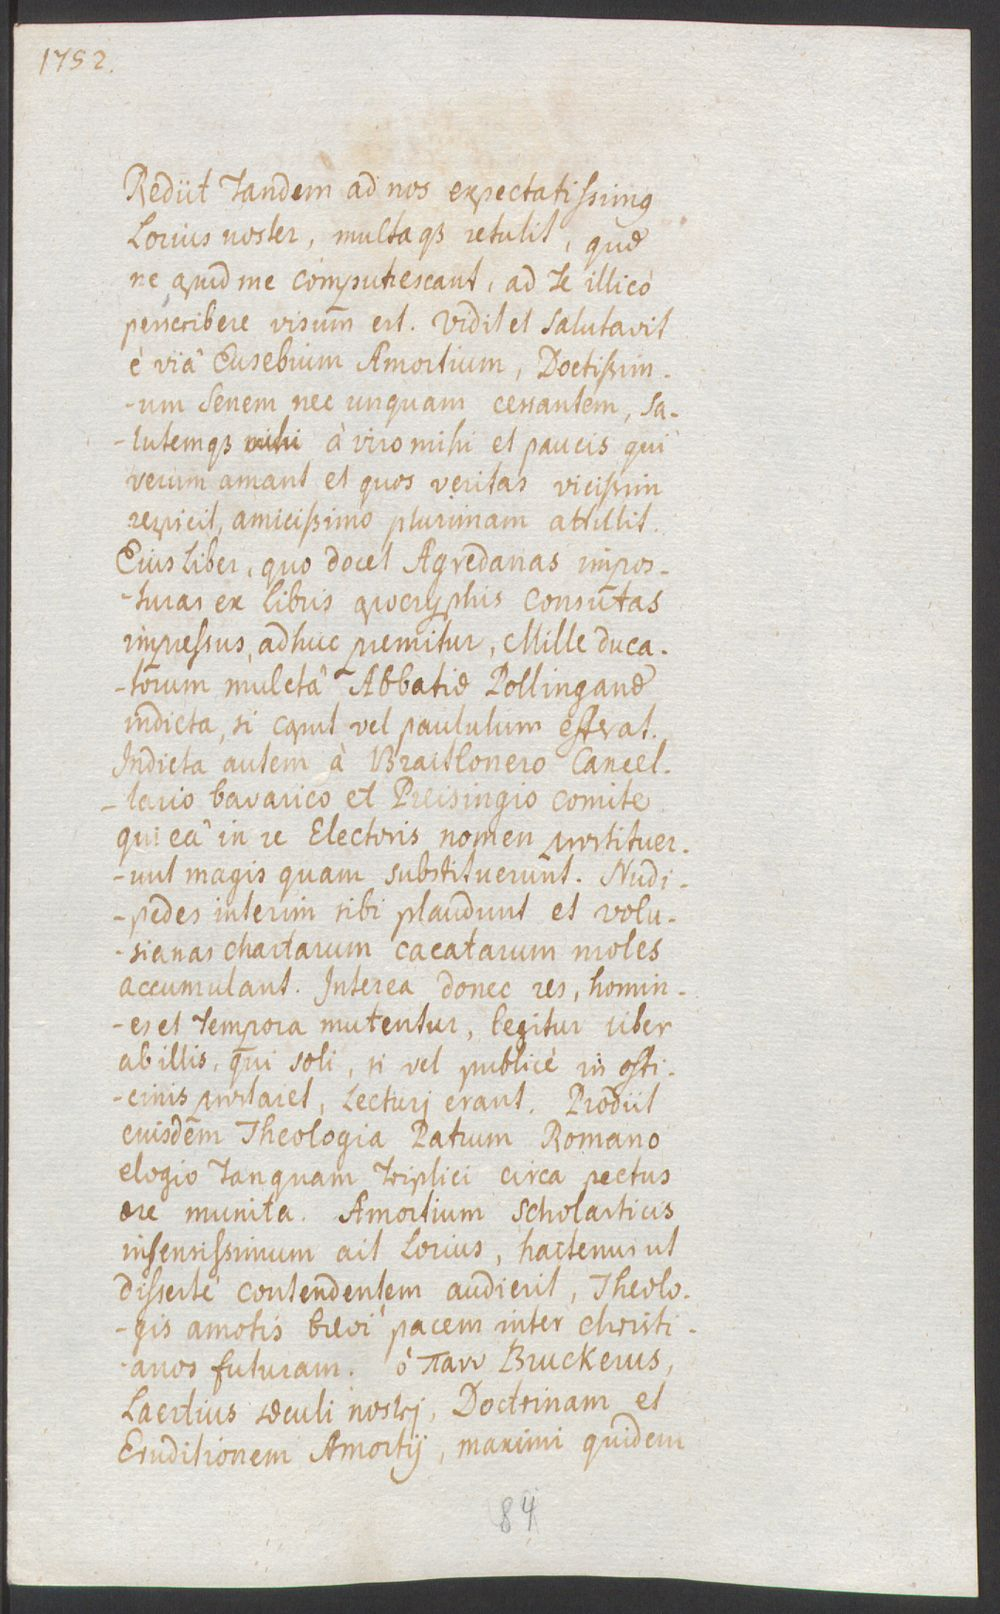 1752.
Rediit Tandem ad nos expectatissimꝰ
Lorius noster, multaqꝫ retulit, quæ
ne apud me computrescant, ad Te illicò
perscribere visum̄ est. Vidit et salutavit
è viâ Eusebium Amortium, Doctissim-
-um Senem nec unquam cessantem, sa-
-lutemqꝫ mihi à viro mihi et paucis qui
verum amant et quos veritas vicissim
respicit, amicissimo plurimam attulit.
Eius liber, quo docet Agredanas impos-
-turas ex libris apocryphis Consūtas
impressus, adhuc premitur, Mille duca-
-torum mulctâ Abbatiæ Pollinganæ
indicta, si caput vel paululum efferat.
Indicta autem à Braitlonero Cancel-
-lario bavarico et Preisingio comite
qui eâ in re Electoris nomen prostituer-
-unt magis quam substituerūnt. Nudi-
-pedes interim sibi plaudunt et volu-
-sianas chartarum cacatarum moles
accumulant. Interea donec res, homin-
-es et Tempora mutentur, legitur liber
ab illis, qui soli, si vel publicè in offi-
-cinis prostaret, Lecturj erant. Prodiit
eiusdēm Theologia Patrum Romano
elogio Tanquam triplici circa pectus
ære munita. Amortium Scholasticis
infensissimum ait Lorius, hactenus ut
dissertè contendentem audierit, Theolo-
-gis amotis brevi pacem inter christi-
-anos futuram. ὁ παυυ Bruckerus,
Laertius sæculi nostrj, Doctrinam et
Eruditionem Amortij, maximi quidem
84